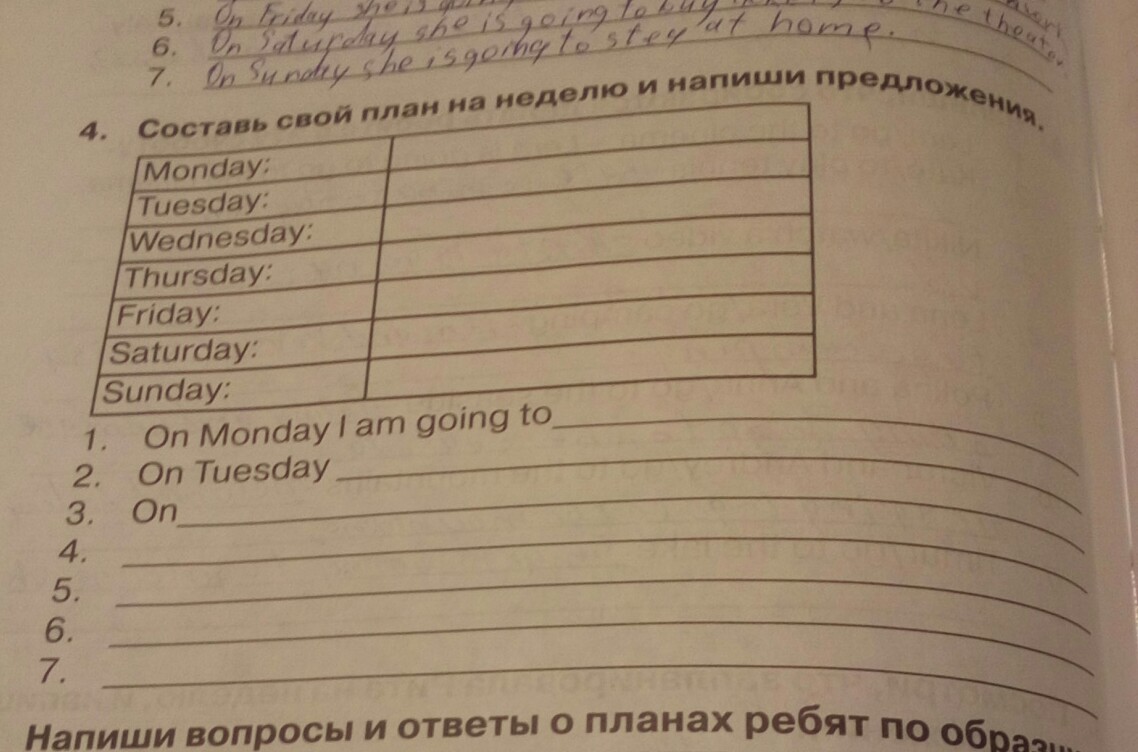 5. On Friday she is
6. On Saturday she is going to buy the theater.
7. On Sunday she is going to stey at home.
4. Составь свой план на неделю и напиши предложения.
Monday:
Tuesday:
Wednesday:
Thursday:
Friday:
Saturday:
Sunday:
1. On Monday I am going to
2. On Tuesday
3. On
4.
5.
6.
7.
Напиши вопросы и ответы о планах ребят по